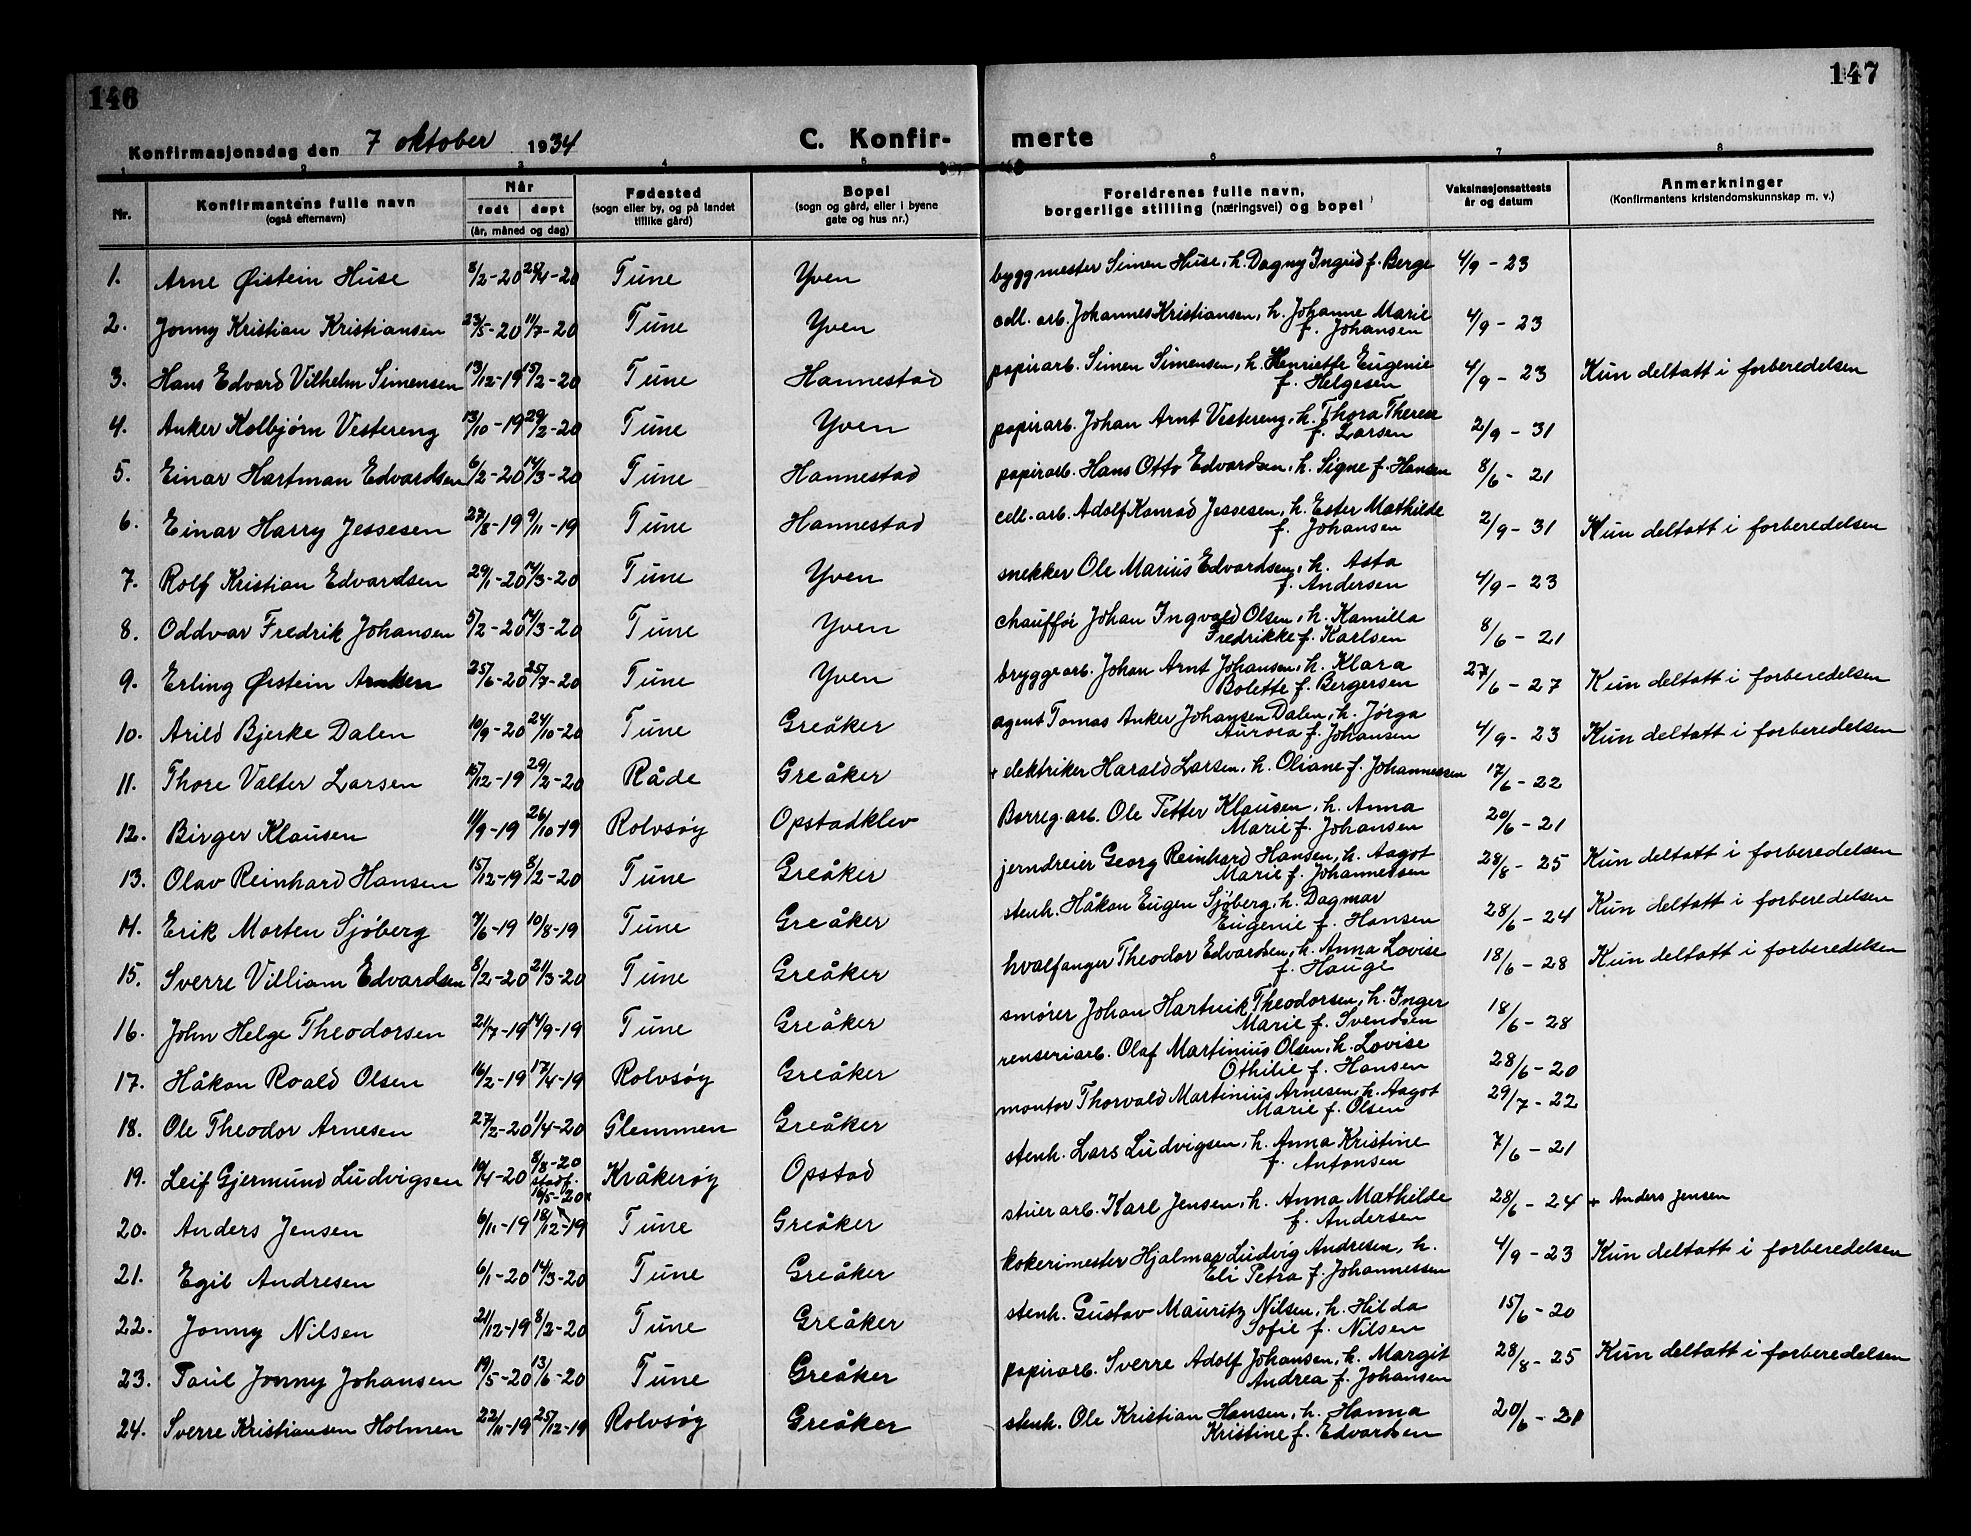 146
147
Konfirmasjonsdag den 7 oktober 1934
C. Konfir- merte
1 2 3 4 5 6 7 8
Nr. Konfirmantens fulle navn (også efternavn) Når født døpt (år, måned og dag) Fødested (sogn eller by, og på landet tillike gård) Bopel (sogn og gård, eller i byene gate og hus nr.) Foreldrenes fulle navn, borgerlige stilling (næringsvei) og bopel Vaksinasjonsattests år og datum Anmerkninger (Konfirmantens kristendomskunnskap m. v.)
1. Arne Øistein Huse 8/2-20 28/4-20 Tune Yven byggmester Simen Huse, h. Dagny Ingrid f. Berge 4/9 - 23
2. Jonny Kristian Kristiansen 23/5-20 11/7-20 Tune Yven cell. arb. Johannes Kristiansen, h. Johanne Marie 4/9 - 23
f. Johansen
3. Hans Edvard Vilhelm Simensen 13/12-19 15/2-20 Tune Hannestad papirarb. Simen Simensen, h. Henriette Eugenie 4/9 - 23 Kun deltatt i forberedelsen
f. Helgesen
4. Anker Kolbjørn Vestereng 13/10-19 29/2-20 Tune Yven papirarb. Johan Arnt Vestereng, h. Thora Therese 2/9 - 31
f. Larsen
5. Einar Hartman Edvardsen 6/2-20 14/3-20 Tune Hannestad papirarb. Hans Otto Edvardsen, h. Signe f. Hansen 8/6 - 21
6. Einar Harry Jessesen 27/8-19 9/11-19 Tune Hannestad cell. arb. Adolf Konrad Jessesen, h. Ester Mathilde 2/9 - 31 Kun deltatt i forberedelsen
f. Johansen
7. Rolf Kristian Edvardsen 29/1-20 14/3-20 Tune Yven snekker Ole Marius Edvardsen, h. Asta 4/9 - 23
f. Andersen
8. Oddvar Fredrik Johansen 5/2-20 14/3-20 Tune Yven chauffør Johan Ingvald Olsen, h. Kamilla 8/6 - 21
Fredrikke f. Karlsen
9. Erling Øistein 25/6-20 25/7-20 Tune Yven bryggearb. Johan Arnt Johansen, h. Klara 27/6 - 27 Kun deltatt i forberedelsen
Bolette f. Bergersen
10. Arild Bjerke Dalen 10/9-20 24/10-20 Tune Greåker agent Tomas Anker Johansen Dalen, h. Jørga 4/9 - 23 Kun deltatt i forberedelsen
Aurora f. Johansen
11. Thore Valter Larsen 15/12-19 29/2-20 Råde Greåker + elektriker Harald Larsen, h. Oliane f. Johannessen 17/6 - 22
12. Birger Klausen 11/9-19 26/10-19 Rolvsøy Opstadklev Borreg. arb. Ole Petter Klausen, h. Anna 20/6 - 21
Marie f. Johansen
13. Olav Reinhard Hansen 15/12-19 8/2-20 Tune Greåker jerndreier Georg Reinhard Hansen, h. Aagot 28/8 - 25 Kun deltatt i forberedelsen
Marie f. Johannessen
14. Erik Morten Sjøberg 7/6-19 10/8-19 Tune Greåker stenh. Håkon Eugen Sjøberg, h. Dagmar 28/6 - 24 Kun deltatt i forberedelsen
Eugenie f. Hansen
15. Sverre Villiam Edvardsen 8/2-20 21/3-20 Tune Greåker hvalfanger Theodor Edvardsen, h. Anna Lovise 18/6 - 28 Kun deltatt i forberedelsen
f. Hauge
16. John Helge Theodorsen 21/7-19 14/9-19 Tune Greåker smører Johan Hartvik Theodorsen, h. Inger 18/6 - 28
Marie f. Svendsen
17. Håkon Roald Olsen 16/2-19 17/4-19 Rolvsøy Greåker renseriarb. Olaf Martinius Olsen, h. Lovise 28/6 - 20
Othilie f. Hansen
18. Ole Theodor Arnesen 27/2-20 1/4-20 Glemmen Greåker montør Thorvald Martinius Arnesen, h. Aagot 29/7 - 22
Marie f. Olsen
19. Leif Gjermund Ludvigsen 10/4-20 8/8-20 stadf. 16/5-20 Kråkerøy Opstad stenh. Lars Ludvigsen, h. Anna Kristine 7/6 - 21
f. Antonsen
20. Anders Jensen 6/11-19 18/12-19 Tune Greåker stuerarb. Karl Jensen, h. Anna Mathilde 28/6 - 24 + Anders Jensen
f. Andersen
21. Egil Andresen 6/1-20 14/3-20 Tune Greåker kokerimester Hjalmar Ludvig Andresen, h. 4/9 - 23 Kun deltatt i forberedelsen
Eli Petra f. Johannessen
22. Jonny Nilsen 21/12-19 8/2-20 Tune Greåker stenh. Gustav Mauritz Nilsen, h. Hilda 15/6 - 20
Sofie f. Nilsen
23. Paul Jonny Johansen 19/5-20 13/6-20 Tune Greåker papirarb. Sverre Adolf Johansen, h. Margit 28/8 - 25 Kun deltatt i forberedelsen
Andrea f. Johansen
24. Sverre Kristiansen Holmen 22/11-19 25/12-19 Rolvsøy Greåker stenh. Ole Kristian Hansen, h. Hanna 20/6 - 21
Kristine f. Edvardsen